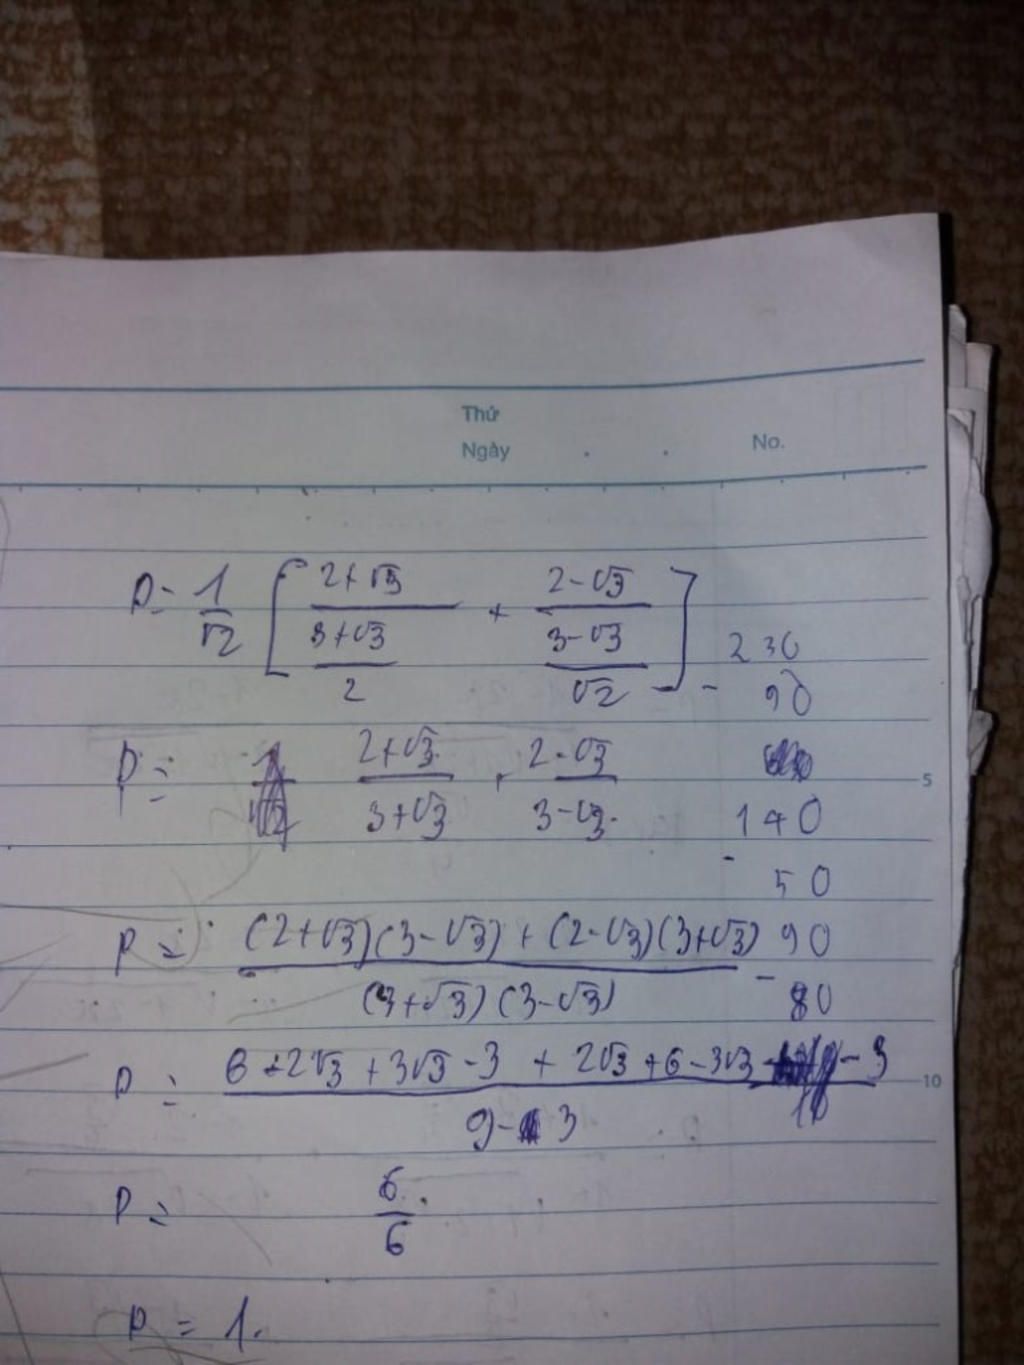 Thứ
Ngày . . No.
P = 1/√2 [ (2+√3)/((3+√3)/2) + (2-√3)/((3-√3)/√2) ]
230
- 90
P = (2+√3)/(3+√3) + (2-√3)/(3-√3)
5
140
- 50
P = ((2+√3)(3-√3) + (2-√3)(3+√3))/((3+√3)(3-√3))
90
- 80
P = (6-2√3+3√3-3 + 2√3+6-3√3-3)/(9-3)
10
10
P = 6/6
P = 1.